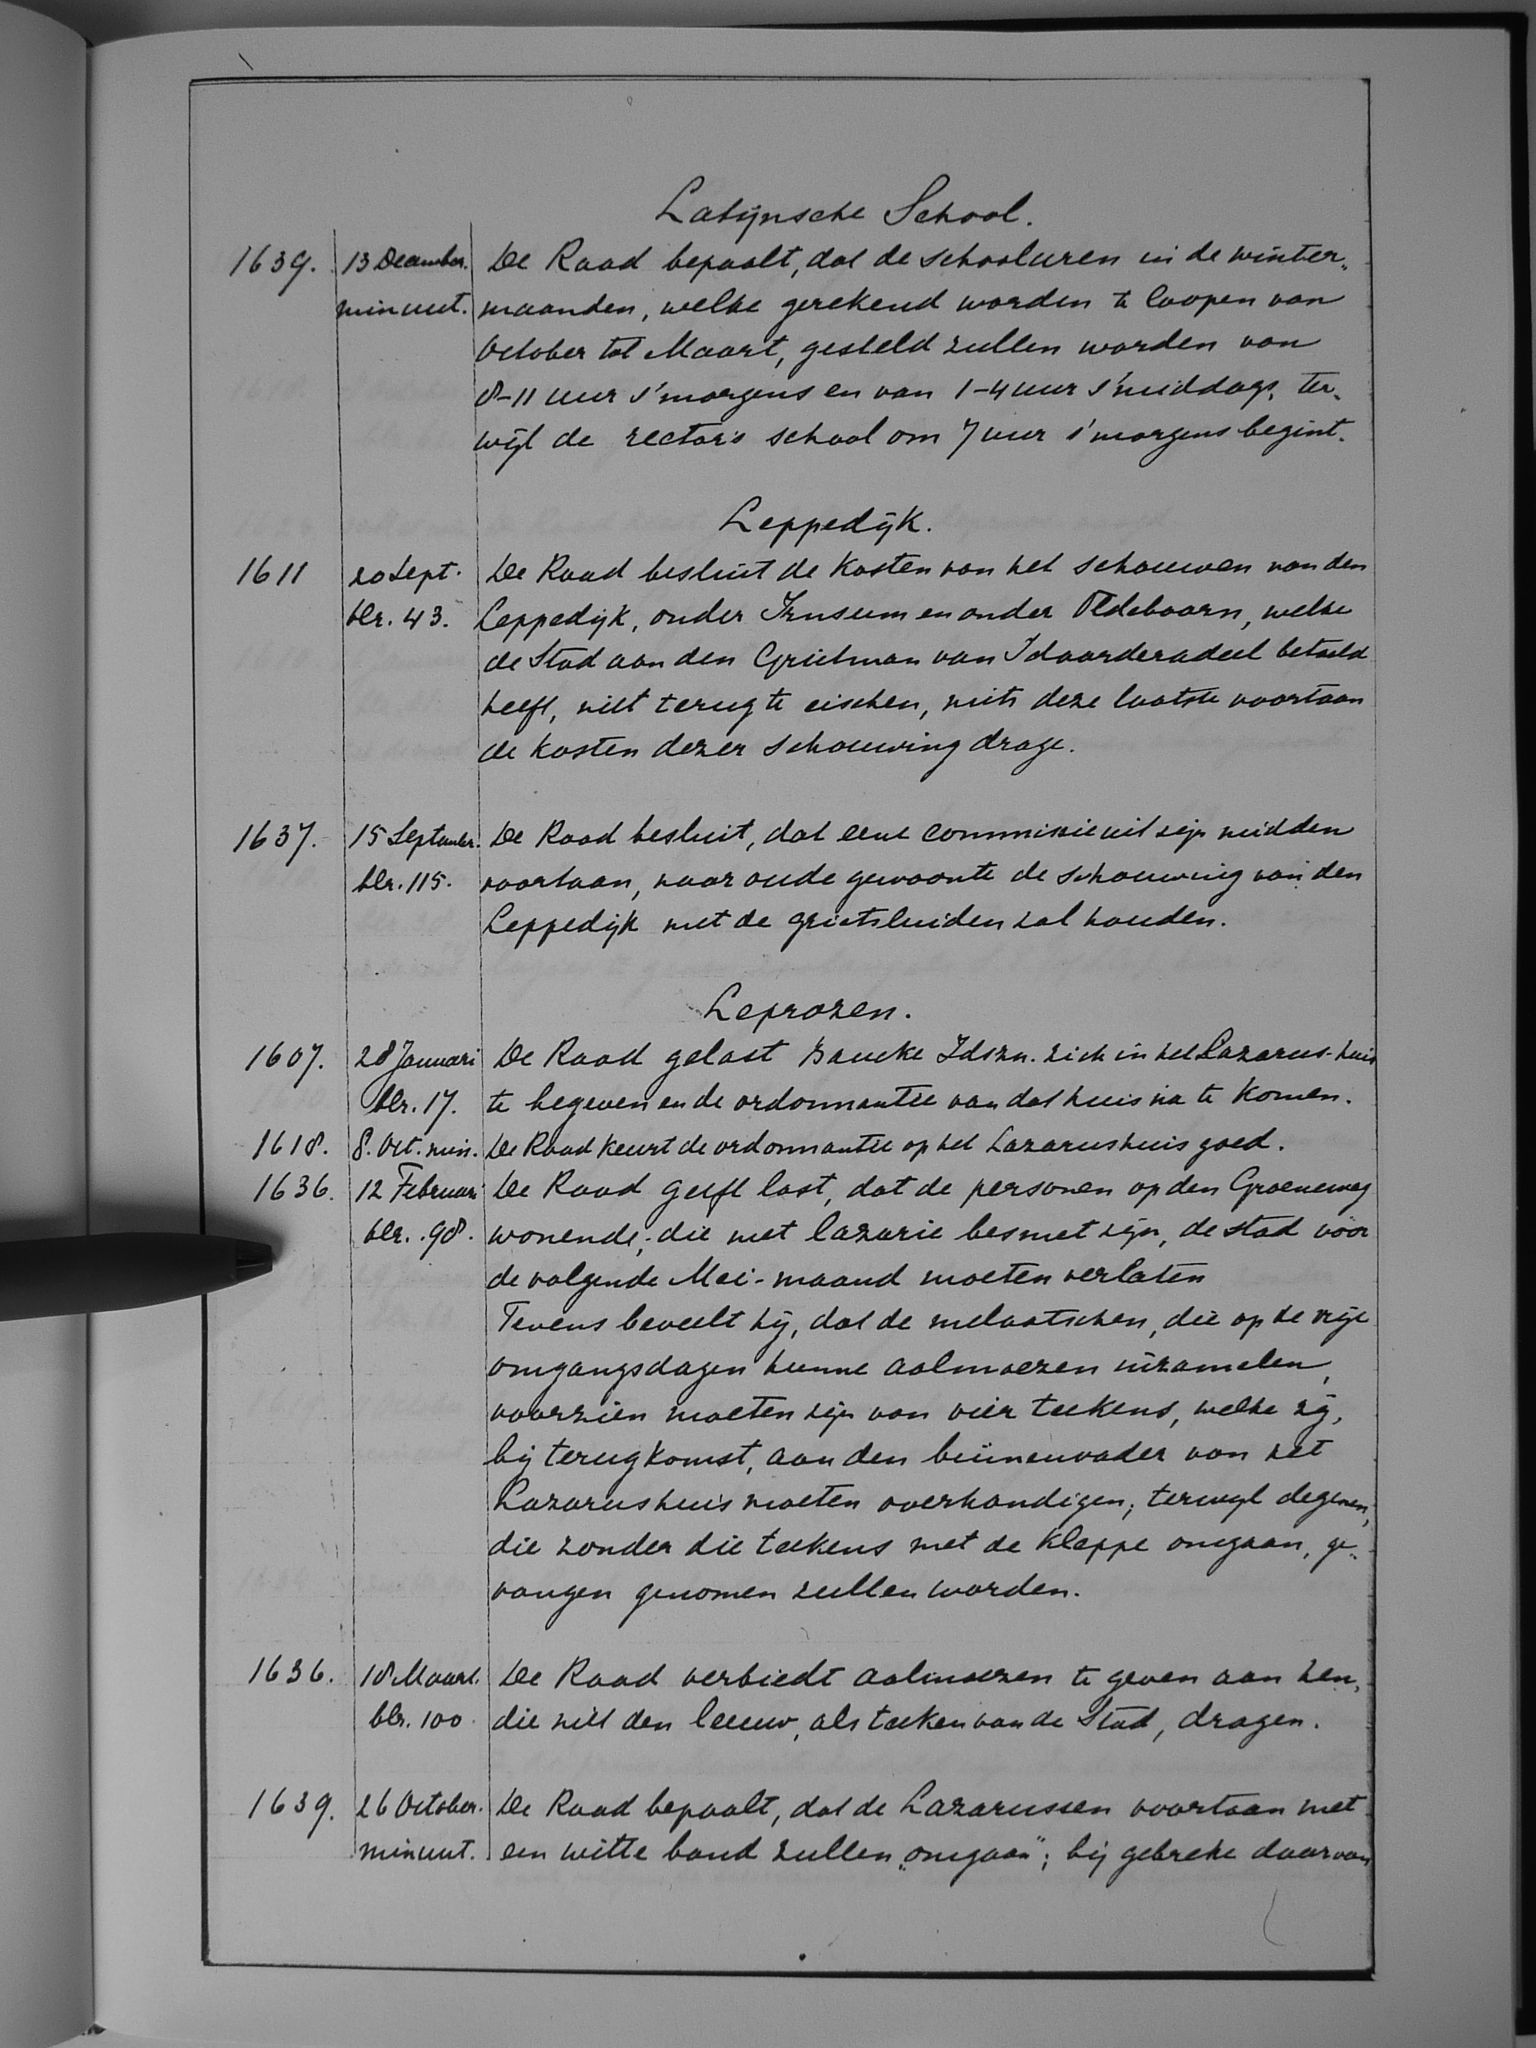 Latijnsche School.
1639. 13 December. De Raad bepaalt, dat de schooluren in de winter-
minuut. maanden, welke gerekend worden te loopen van
October tot Maart, gesteld zullen worden van
8-11 uur s'morgens en van 1-4 uur s'middags, ter-
wijl de rector's school om 7 uur s'morgens begint.
Leppedijk.
1611 20 Sept. De Raad besluit de kosten van het schouwen van den
blz. 43. Leppedijk, onder Irnsum en onder Oldeboorn, welke
de Stad aan den Grietman van Idaarderadeel betaald
heeft, niet terug te eischen, mits deze laatste voortaan
de kosten dezer schouwing drage.
1637. 15 September. De Raad besluit, dat eene commissie uit zijn midden
blz. 115. voortaan, naar oude gewoonte de schouwing van den
Leppedijk met de grietsluiden zal houden.
Leprozen.
1607. 28 Januari De Raad gelast Baucke Idszn. zich in het Lazarus-huis
blz. 17. te begeven en de ordonnantie van dat huis na te komen.
1618. 8. Oct. min. De Raad keurt de ordonnantie op het Lazarushuis goed.
1636. 12 Februari De Raad geeft last, dat de personen op den Groeneweg
blz. 98. wonende, die met lazarie besmet zijn, de stad vóór
de volgende Mei-maand moeten verlaten
Tevens beveelt hij, dat de melaatschen, die op de vrije
omgangsdagen hunne aalmoezen inzamelen,
voorzien moeten zijn van vier teekens, welke zij,
bij terugkomst, aan den binnenvader van het
Lazarushuis moeten overhandigen; terwijl degenen,
die zonder die teekens met de kleppe omgaan, ge-
vangen genomen zullen worden.
1636. 18 Maart. De Raad verbiedt aalmoezen te geven aan hen,
blz. 100. die niet den leeuw, als teeken van de Stad, dragen.
1639. 26 October. De Raad bepaalt, dat de Lazarussen voortaan met
minuut. een witte band zullen „omgaan"; bij gebreke daarvan